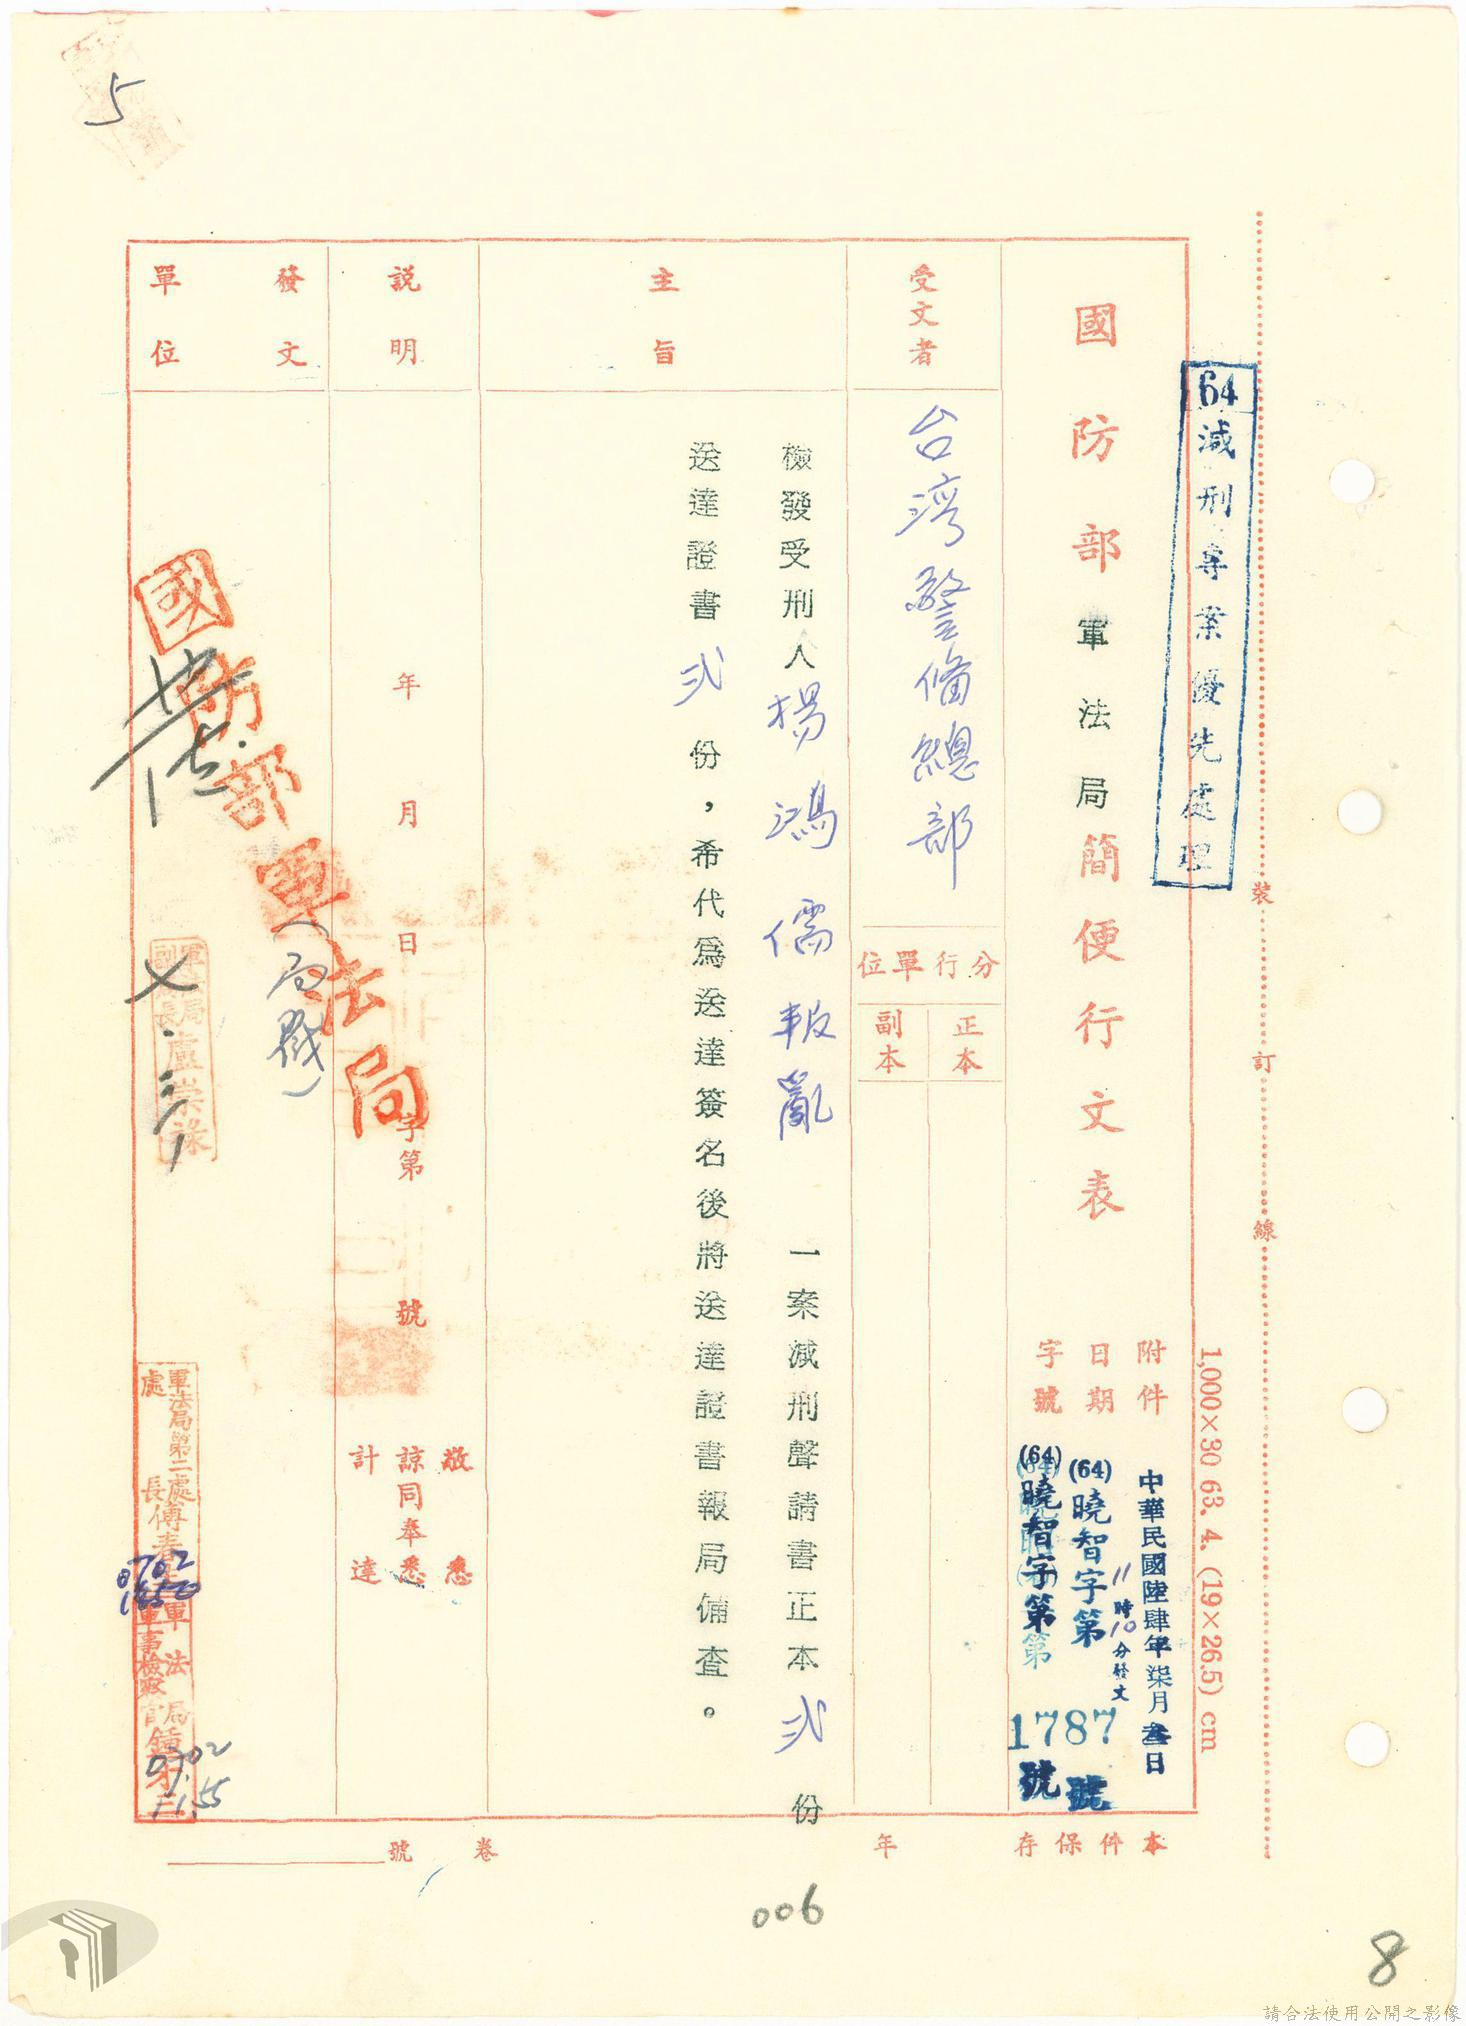 5
64減刑專案優先處理
裝
訂
線
1,000×30 63.4.(19×26.5)cm
國防部軍法局簡便行文表
附件
日期
字號
中華民國陸肆年柒月叁日
11時10分發文
(64)曉智字第
號
(64)曉智字第
1787
號
受文者
台湾警備總部
分行單位
正本
副本
主旨
檢發受刑人楊鴻儒叛亂 一案減刑聲請書正本弍份
送達證書弍份,希代為送達簽名後將送達證書報局備查。
説明
年 月 日 字第 號
敬悉
諒同奉悉
計達
發文
單位
國防部軍法局
(局戳)
軍法局
副局長
盧崇祿
七.三
軍法局第二處
處長傅
0702
軍法局
軍事檢察官鍾
0702
11.55
本件保存 年
卷 號
006
8
請合法使用公開之影像